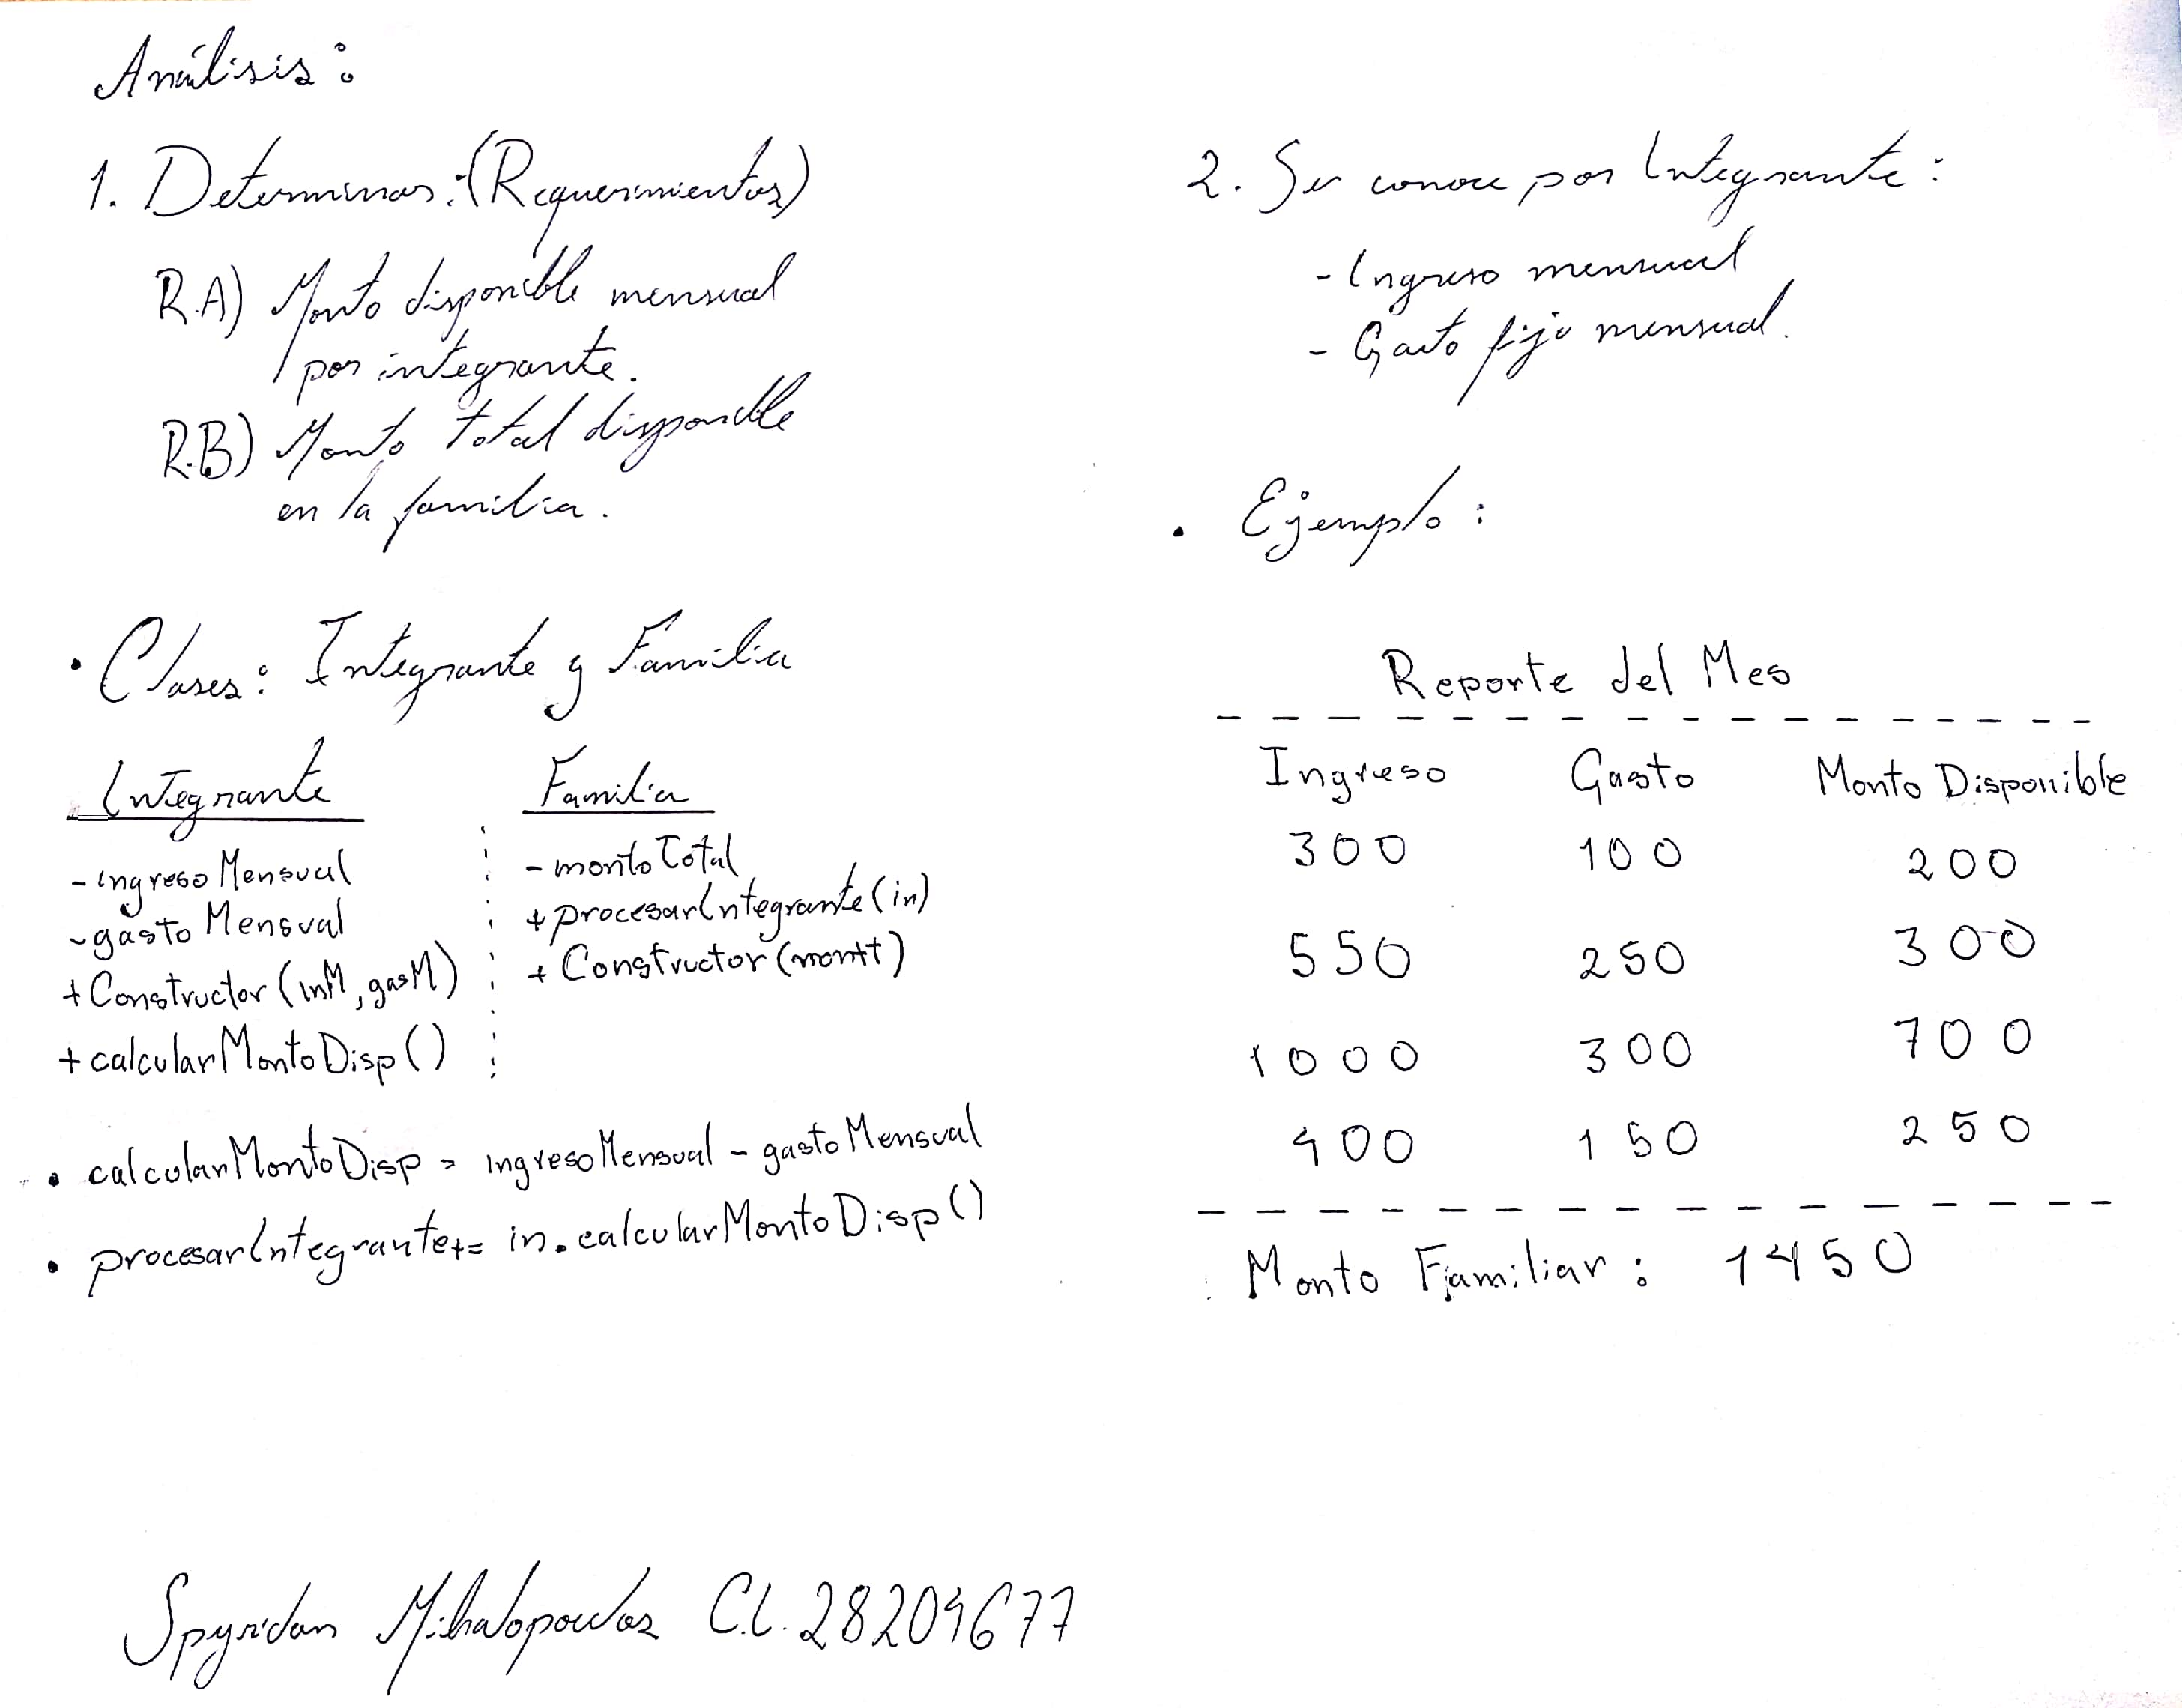 Análisis:
1. Determinar: (Requerimientos)
R.A) Monto disponible mensual
por integrante.
R.B) Monto total disponible
en la familia.
• Clases: Integrante y Familia
Integrante
- ingresoMensual
- gastoMensual
+ Constructor (inM, gasM)
+ calcularMontoDisp()
Familia
- montoTotal
+ procesarIntegrante(in)
+ Constructor (montt)
• calcularMontoDisp = ingresoMensual - gastoMensual
• procesarIntegrante += in.calcularMontoDisp()
2. Se conoce por Integrante:
- Ingreso mensual
- Gasto fijo mensual.
• Ejemplo:
Reporte del Mes
Ingreso Gasto Monto Disponible
300 100 200
550 250 300
1000 300 700
400 150 250
Monto Familiar: 1450
Spyridon Mihalopoulos C.I. 28204677